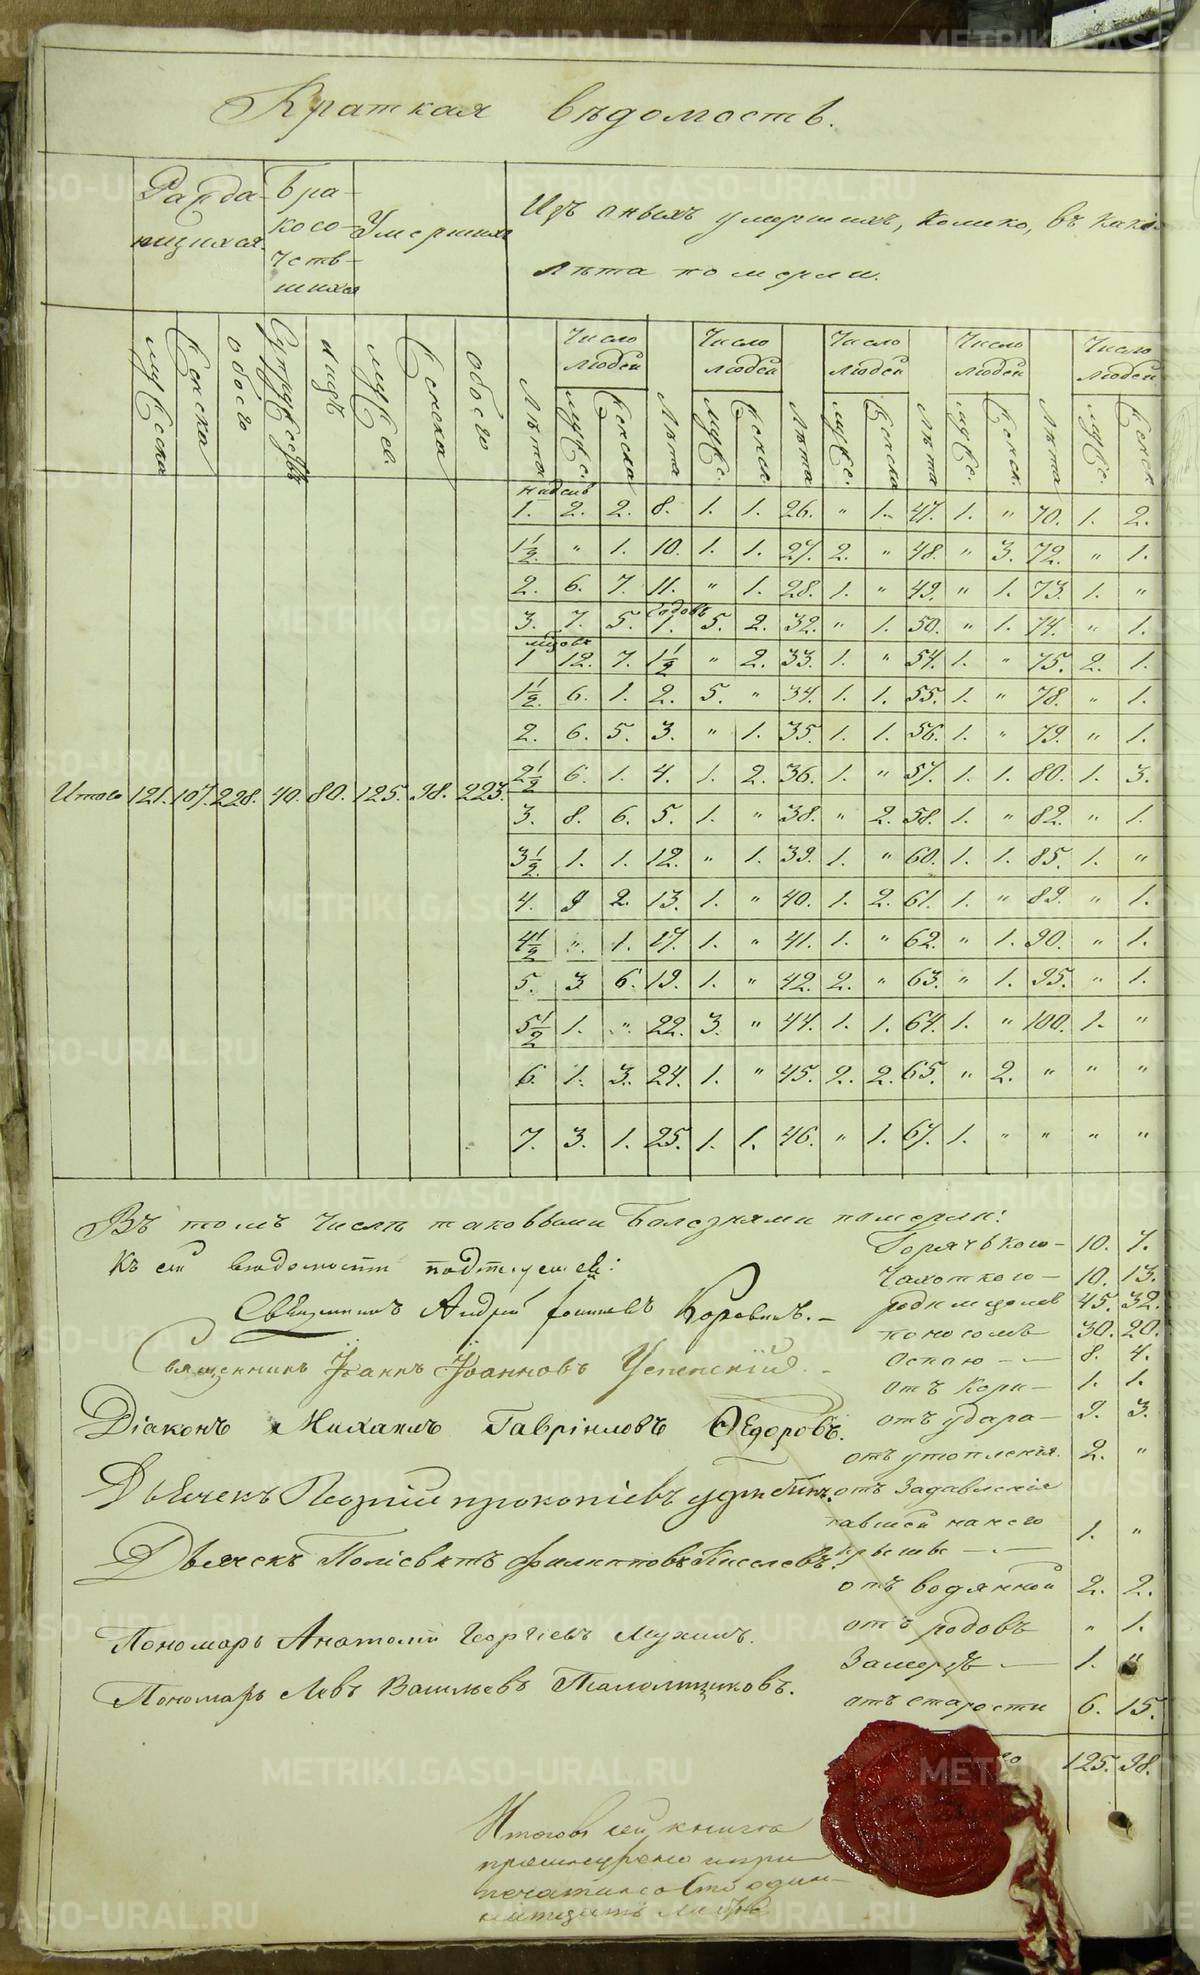 METRIKI.GASO-URAL.RU
Краткая вѣдомость.
Раждающихся.
Бракосочетавшихся
Умершихъ
Изъ оныхъ умершихъ, колико, въ какія
лѣта померли.
мужеска Женска обоего Супружествъ лицъ мужес. Женска обоего
Лѣта Число людей мужес. Женска Лѣта Число людей мужес. Женск. Лѣта Число людей мужес. Женска Лѣта Число людей мужес. Женск. Лѣта Число людей мужес. Женск.
недель
1. 2. 2. 8. 1. 1. 26. " 1. 47. 1. " 70. 1. 2.
1½. " 1. 10. 1. 1. 27. 2. " 48. " 3. 72. " 1.
2. 6. 7. 11. " 1. 28. 1. " 49. " 1. 73. 1. "
годовъ
3. 7. 5. 1. 5. 2. 32. " 1. 50. " 1. 74. " 1.
1 12. 7. 1½ " 2. 33. 1. " 54. 1. " 75. 2. 1.
1½. 6. 1. 2. 5. " 34. 1. 1. 55. 1. " 78. " 1.
2. 6. 5. 3. " 1. 35. 1. 1. 56. 1. " 79. " 1.
2½ 6. 1. 4. 1. 2. 36. 1. " 57. 1. 1. 80. 1. 3.
Итого 121. 107. 228. 40. 80. 125. 98. 223.
3. 8. 6. 5. 1. " 38. " 2. 58. 1. " 82. " 1.
3½. 1. 1. 12. " 1. 39. 1. " 60. 1. 1. 85. 1. "
4. 9 2. 13. 1. " 40. 1. 2. 61. 1. " 89. " 1.
4½ " 1. 17. 1. " 41. 1. " 62. " 1. 90. " 1.
5. 3 6. 19. 1. " 42. 2. " 63. " 1. 95. " 1.
5½ 1. " 22. 3. " 44. 1. 1. 64. 1. " 100. 1. "
6. 1. 3. 24. 1. " 45. 2. 2. 65. " 2. " " "
7. 3. 1. 25. 1. 1. 46. " 1. 67. 1. " " " "
Въ томъ числѣ таковыми болезнями померли:
Горячькою 10. 7.
Чахоткою 10. 13.
родимцомъ 45. 32.
поносомъ 30. 20.
оспою 8. 4.
отъ кори 1. 1.
отъ удара 9. 3.
отъ утопленія. 2. "
отъ задавленія
павшей на него
крыши 1. "
отъ водянной 2. 2.
отъ родовъ " 1.
Замерзъ 1. "
отъ старости 6. 15.
125. 98.
Къ сей вѣдомости
Священникъ Андрей Коровинъ.
Священникъ Іоаннъ Іоанновъ Успенскій.
Діаконъ Михаилъ Гавріиловъ Ѳедоровъ.
Дьячекъ Георгій Прокопіевъ
Дьячекъ Поліевктъ Филипповъ Киселевъ.
Пономарь Анатолій Георгіевъ Мухинъ.
Пономарь Левъ Васильевъ
Итого въ сей книгѣ
прошнурено и при
печатано сто один
надцать листовъ